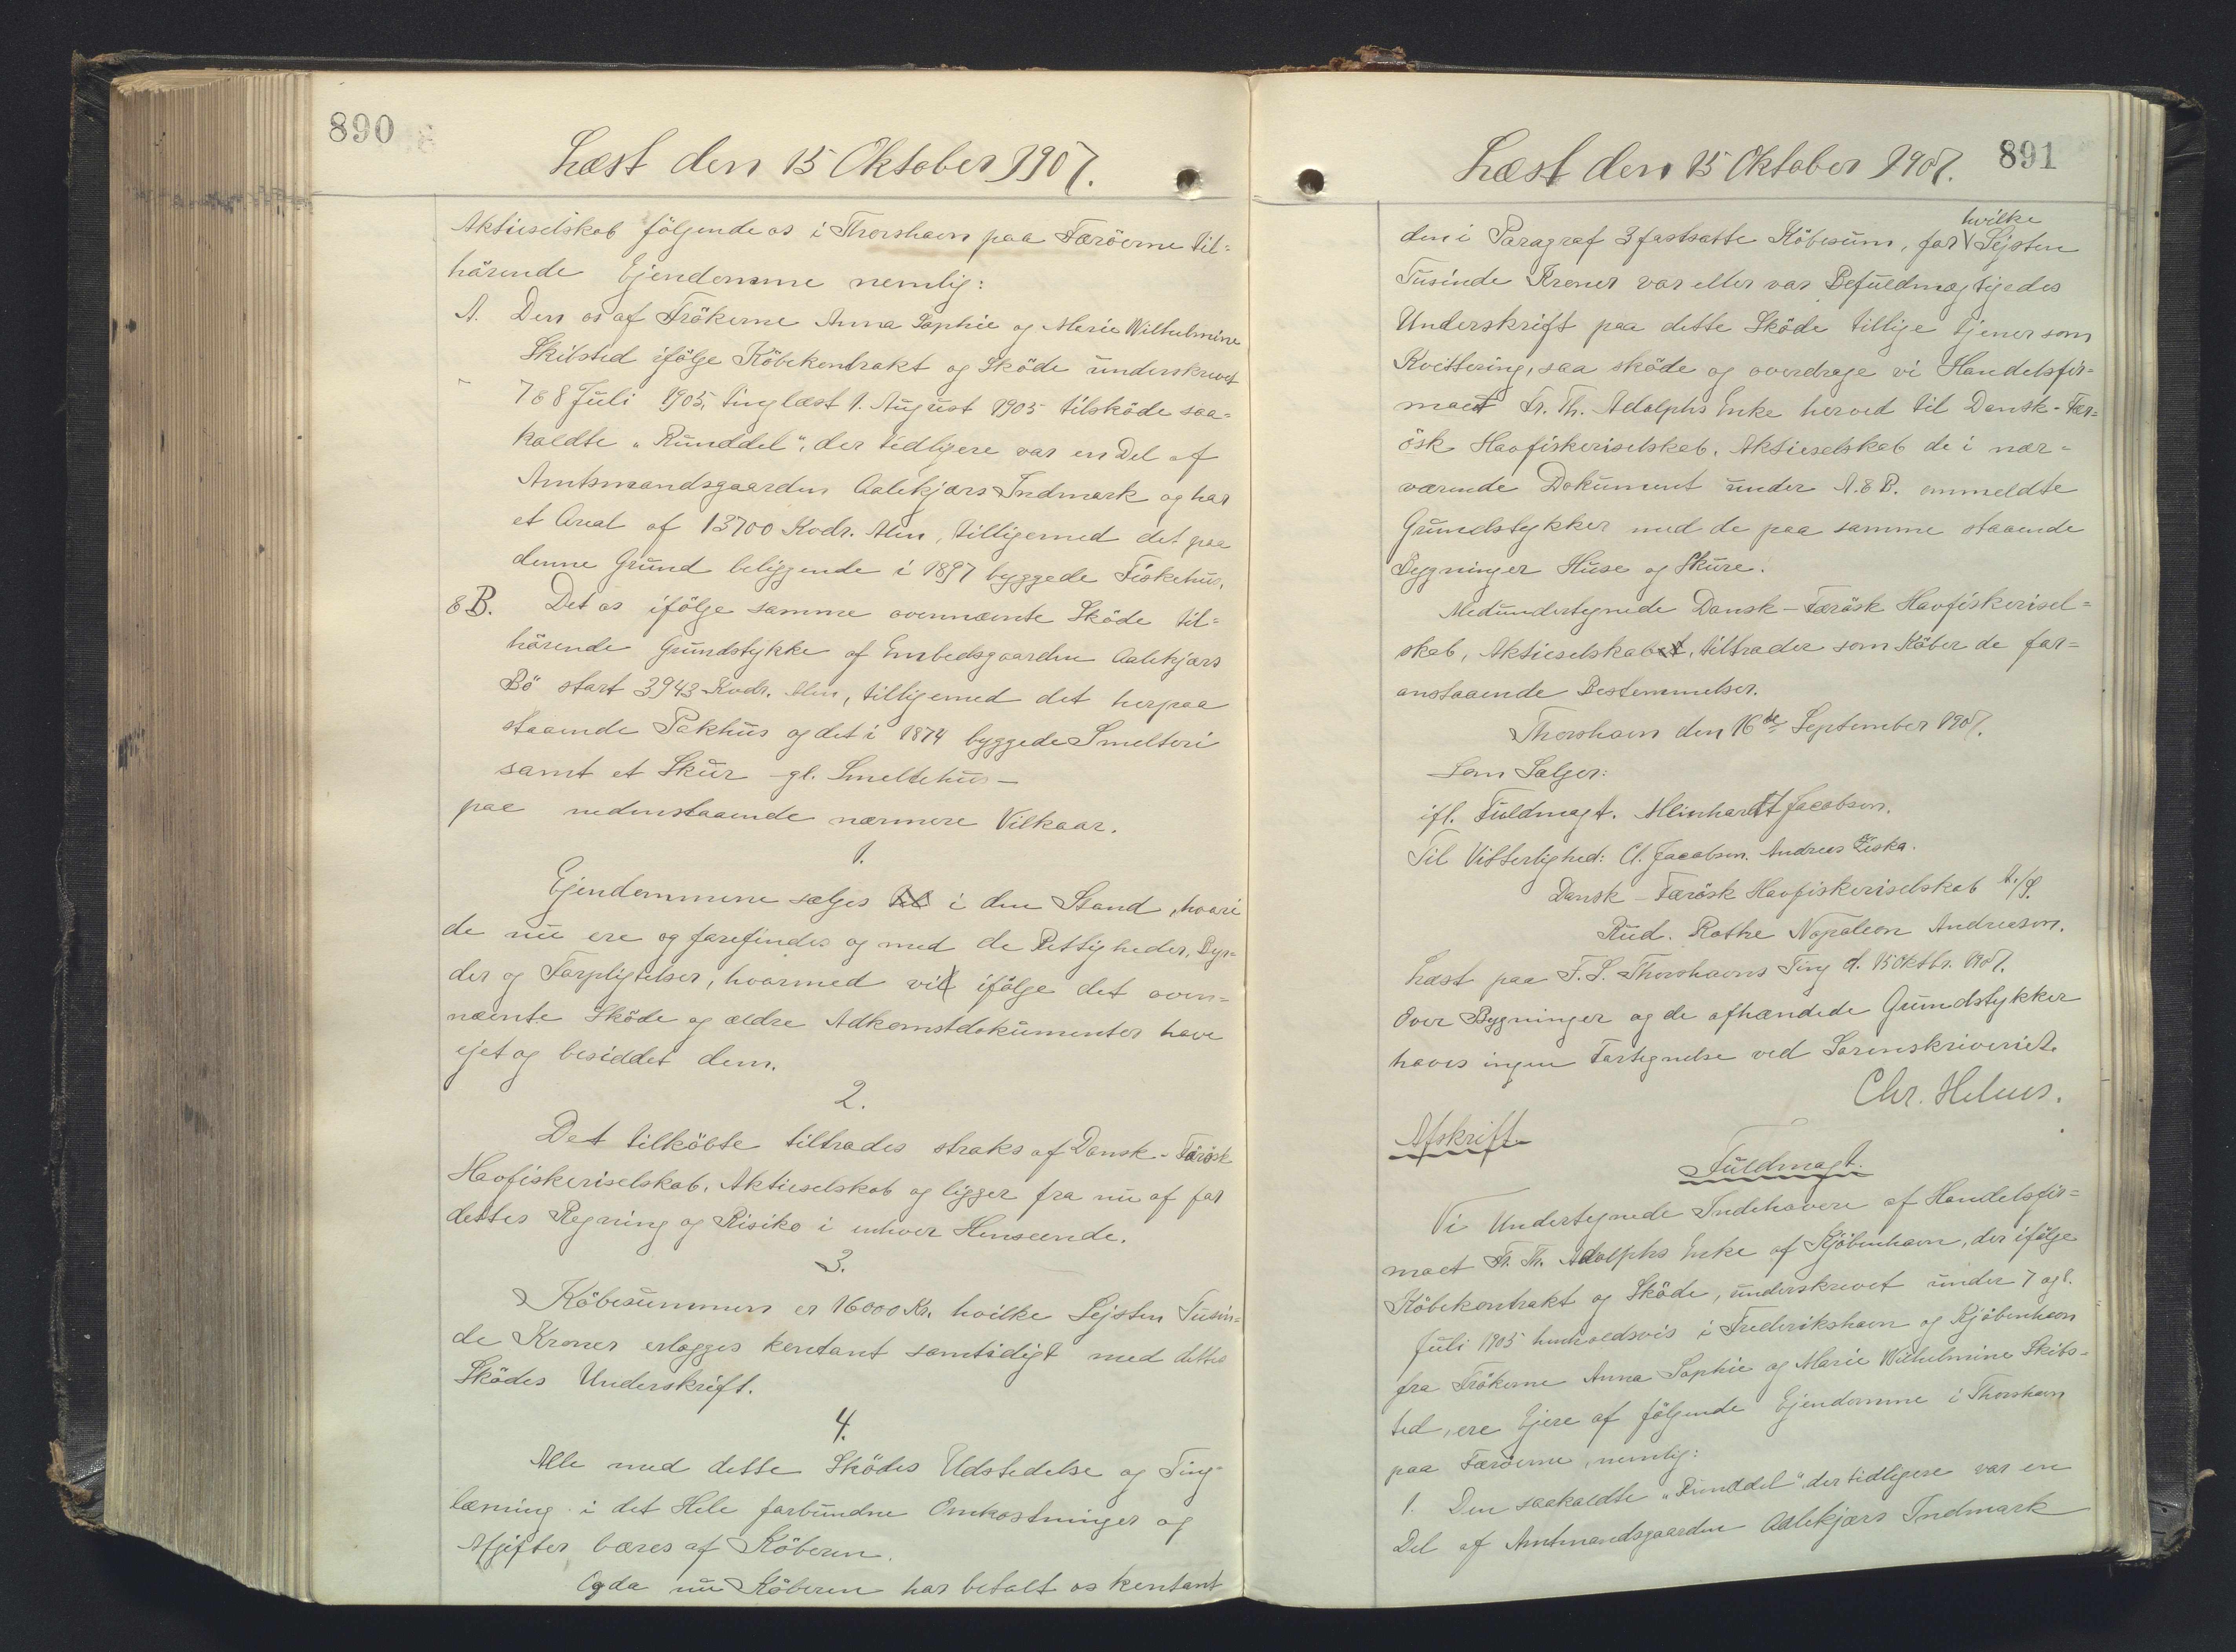 890
Læst den 15 Oktober 1907.
Aktieselskab følgende os i Thorshavn paa Færöerne til-
hörende Ejendomme nemlig:
A. Den os af Frökerne Anna Sophie og Marie Wilhelmine
Skibsted ifölge Köbekontrakt og Sköde underskrevet
7 & 8 Juli 1905, tinglæst 1. August 1905 tilsköde saa-
kaldte "Runddel", der tidligere var en Del af
Amtsmandsgaarden Aalekjærs Indmark og har
et Areal af 13700 Kvdr. Alen, tilligemed det paa
denne Grund beliggende i 1897 byggede Fiskehus,
& B. Det os ifölge samme ovennævnte Sköde til-
hörende Grundstykke af Embedsgaarden Aalekjærs
Bö stort 3943 Kvdr. Alen, tilligemed det herpaa
staaende Pakhus og det i 1874 byggede Smelteri
samt et Skur - gl. Smeltehus -
paa nedenstaaende nærmere Vilkaar.
1.
Ejendommene sælges i den Stand, hvori
de nu ere og forefindes og med de Rettigheder, Byr-
der og Forpligtelser, hvormed vi ifölge det oven-
nævnte Sköde og ældre Adkomstdokumenter have
ejet og besiddet dem.
2.
Det tilköbte tiltrædes straks af Dansk-Færösk
Havfiskeriselskab, Aktieselskab og ligger fra nu af for
dettes Regning og Risiko i enhver Henseende.
3.
Köbesummen er 16000 Kr. hvilke Sejsten Tusin-
de Kroner erlægges kontant samtidigt med dette
Sködes Underskrift.
4.
Alle med dette Sködes Udstedelse og Ting-
læsning i det Hele forbundne Omkostninger og
Afgifter bæres af Köberen.
Og da nu Köberen har betalt os kontant
891
Læst den 15 Oktober 1907.
den i Paragraf 3 fastsatte Köbesum, for hvilke Sejsten
Tusinde Kroner vor eller vor Befuldmægtigedes
Underskrift paa dette Sköde tillige tjener som
Kvittering, saa sköde og overdrage vi Handelsfir-
maet Fr. Th. Adolphs Enke herved til Dansk-Fær-
ösk Havfiskeriselskab, Aktieselskab de i nær-
værende Dokument under A. & B. ommeldte
Grundstykker med de paa samme staaende
Bygninger Huse og Skure.
Medundertegnede Dansk-Færösk Havfiskerisel-
skab, Aktieselskab, tiltræder som Köber de for-
anstaaende Bestemmelser.
Thorshavn den 16de September 1907.
Som Sælger:
ifl. Fuldmagt. Meinhardt Jacobsen.
Til Vitterlighed: Cl. Jacobsen. Andreas Ziska.
Dansk-Færösk Havfiskeriselskab A./S.
Rud. Rothe Napoleon Andreasen.
Læst paa F. S. Thorshavns Ting d. 15 Oktbr. 1907.
Over Bygninger og de afhændede Gundstykker
haves ingen Fortegnelse ved Sorenskriveriet.
Chr. Helms.
Afskrift.
Fuldmagt.
Vi Undertegnede Indehavere af Handelsfir-
maet Fr. Th. Adolphs Enke af Kjöbenhavn, der ifölge
Köbekontrakt og Sköde, underskrevet under 7 og 8.
Juli 1905 henholdsvis i Frederikshavn og Kjöbenhavn
fra Frökerne Anna Sophie og Marie Wilhelmine Skibs-
ted, ere Ejere af fölgende Ejendomme i Thorshavn
paa Færöerne, nemlig:
1. Den saakaldte "Runddel" der tidligere var en
Del af Amtmandsgaarden Aalekjærs Indmark